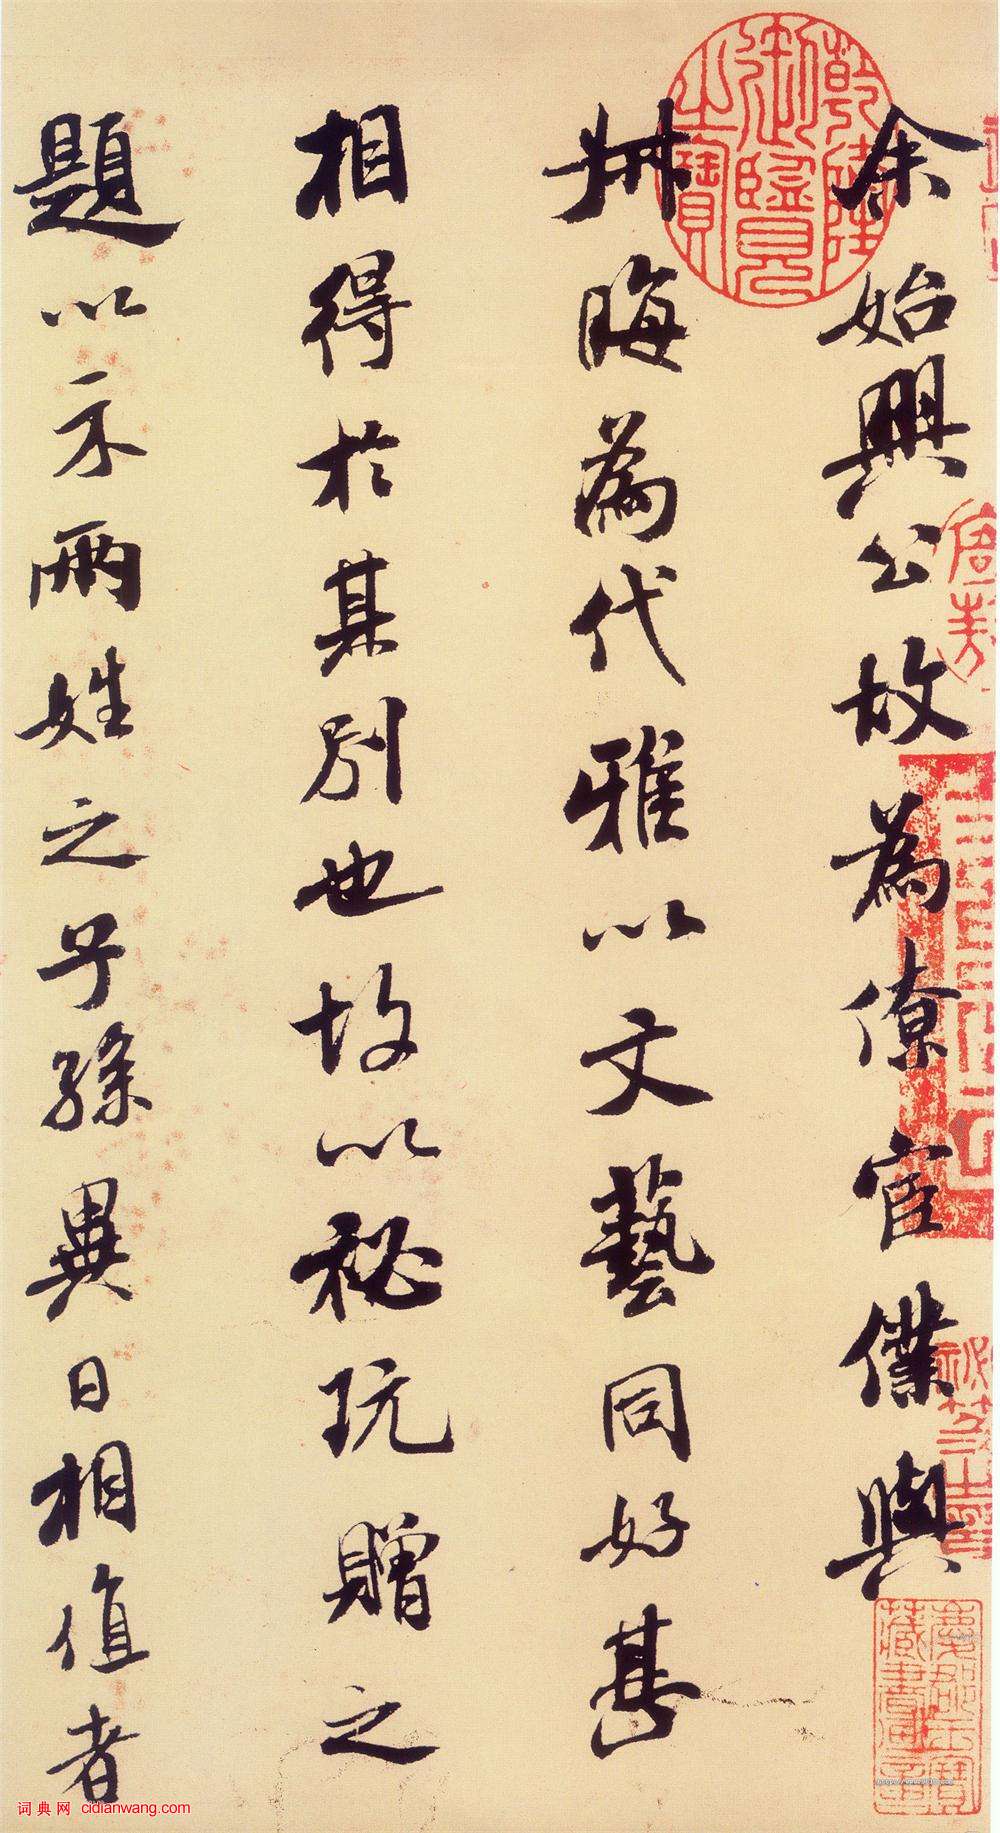 余始興公故為僚宦僕與
叔晦為代雅以文藝同好甚
相得於其別也故以秘玩贈之
題以示兩姓之子孫異日相值者
乾隆御覽之寶
词典网 cidianwang.com